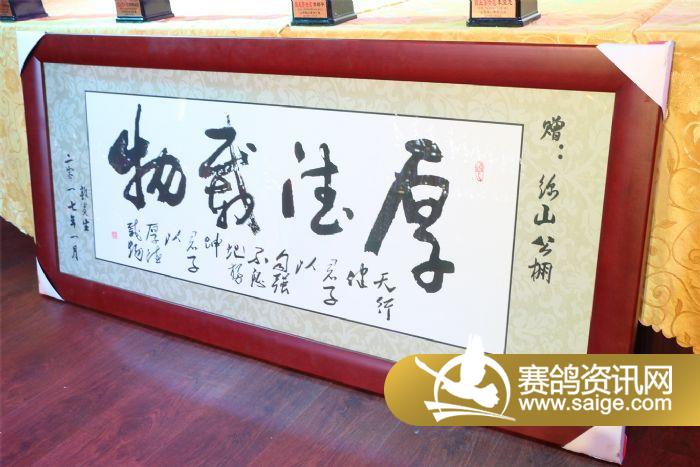 厚德载物
天行
健
君子
以
自强
不息
地势
坤
君子
以
厚德
载物
赠：弥山公棚
二零一七年一月
赛鸽资讯网
www.saige.com